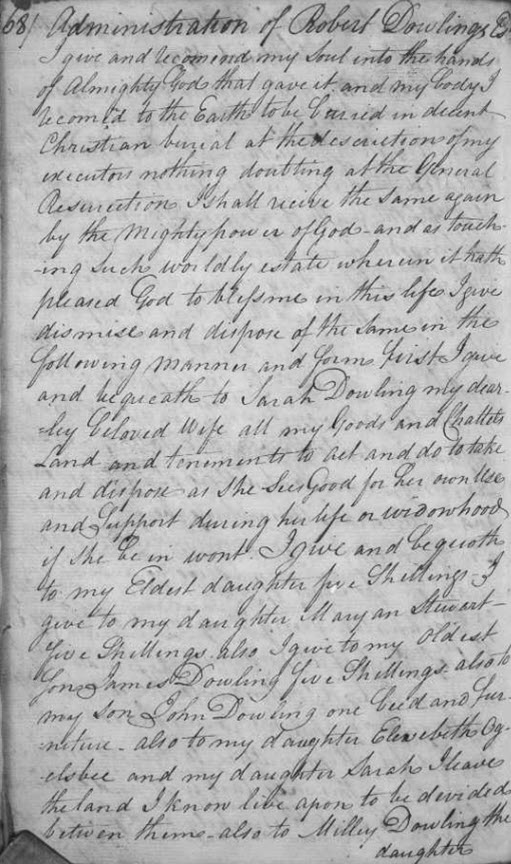 68/ Administration of Robert Dowlings Es
I give and recomend my Soul into the hands
of Almighty God that gave it and my body I
recomed to the Earth to be buried in decent
Christian burial at the descrietion of my
executors nothing doubting at the General
Resurection I shall recive the same again
by the Mighty power of God - and as touch-
-ing Such worldly estate wherein it hath
pleased God to bless me in this life I give
dismise and dispose of the same in the
following manner and form first I give
and bequeath to Sarah Dowling my dear-
-ley beloved Wife all my Goods and Chattels
Land and tenements to act and do to take
and dispose as she Sees Good for her own Use
and Support during her life or widowhood
if she be in wont I give and bequoth
to my Eldest daughter five Shillings I
give to my daughter Maryan Stewart -
five Shillings also I give to my oldest
Son James Dowling five Shillings also to
my son John Dowling one beed and fur-
-neture - also to my daughter Elizebeth Og-
-elsbee and my daughter Sarah I leave
the land I know live apon to be devided
between them - also to Milley Dowling the
daughter